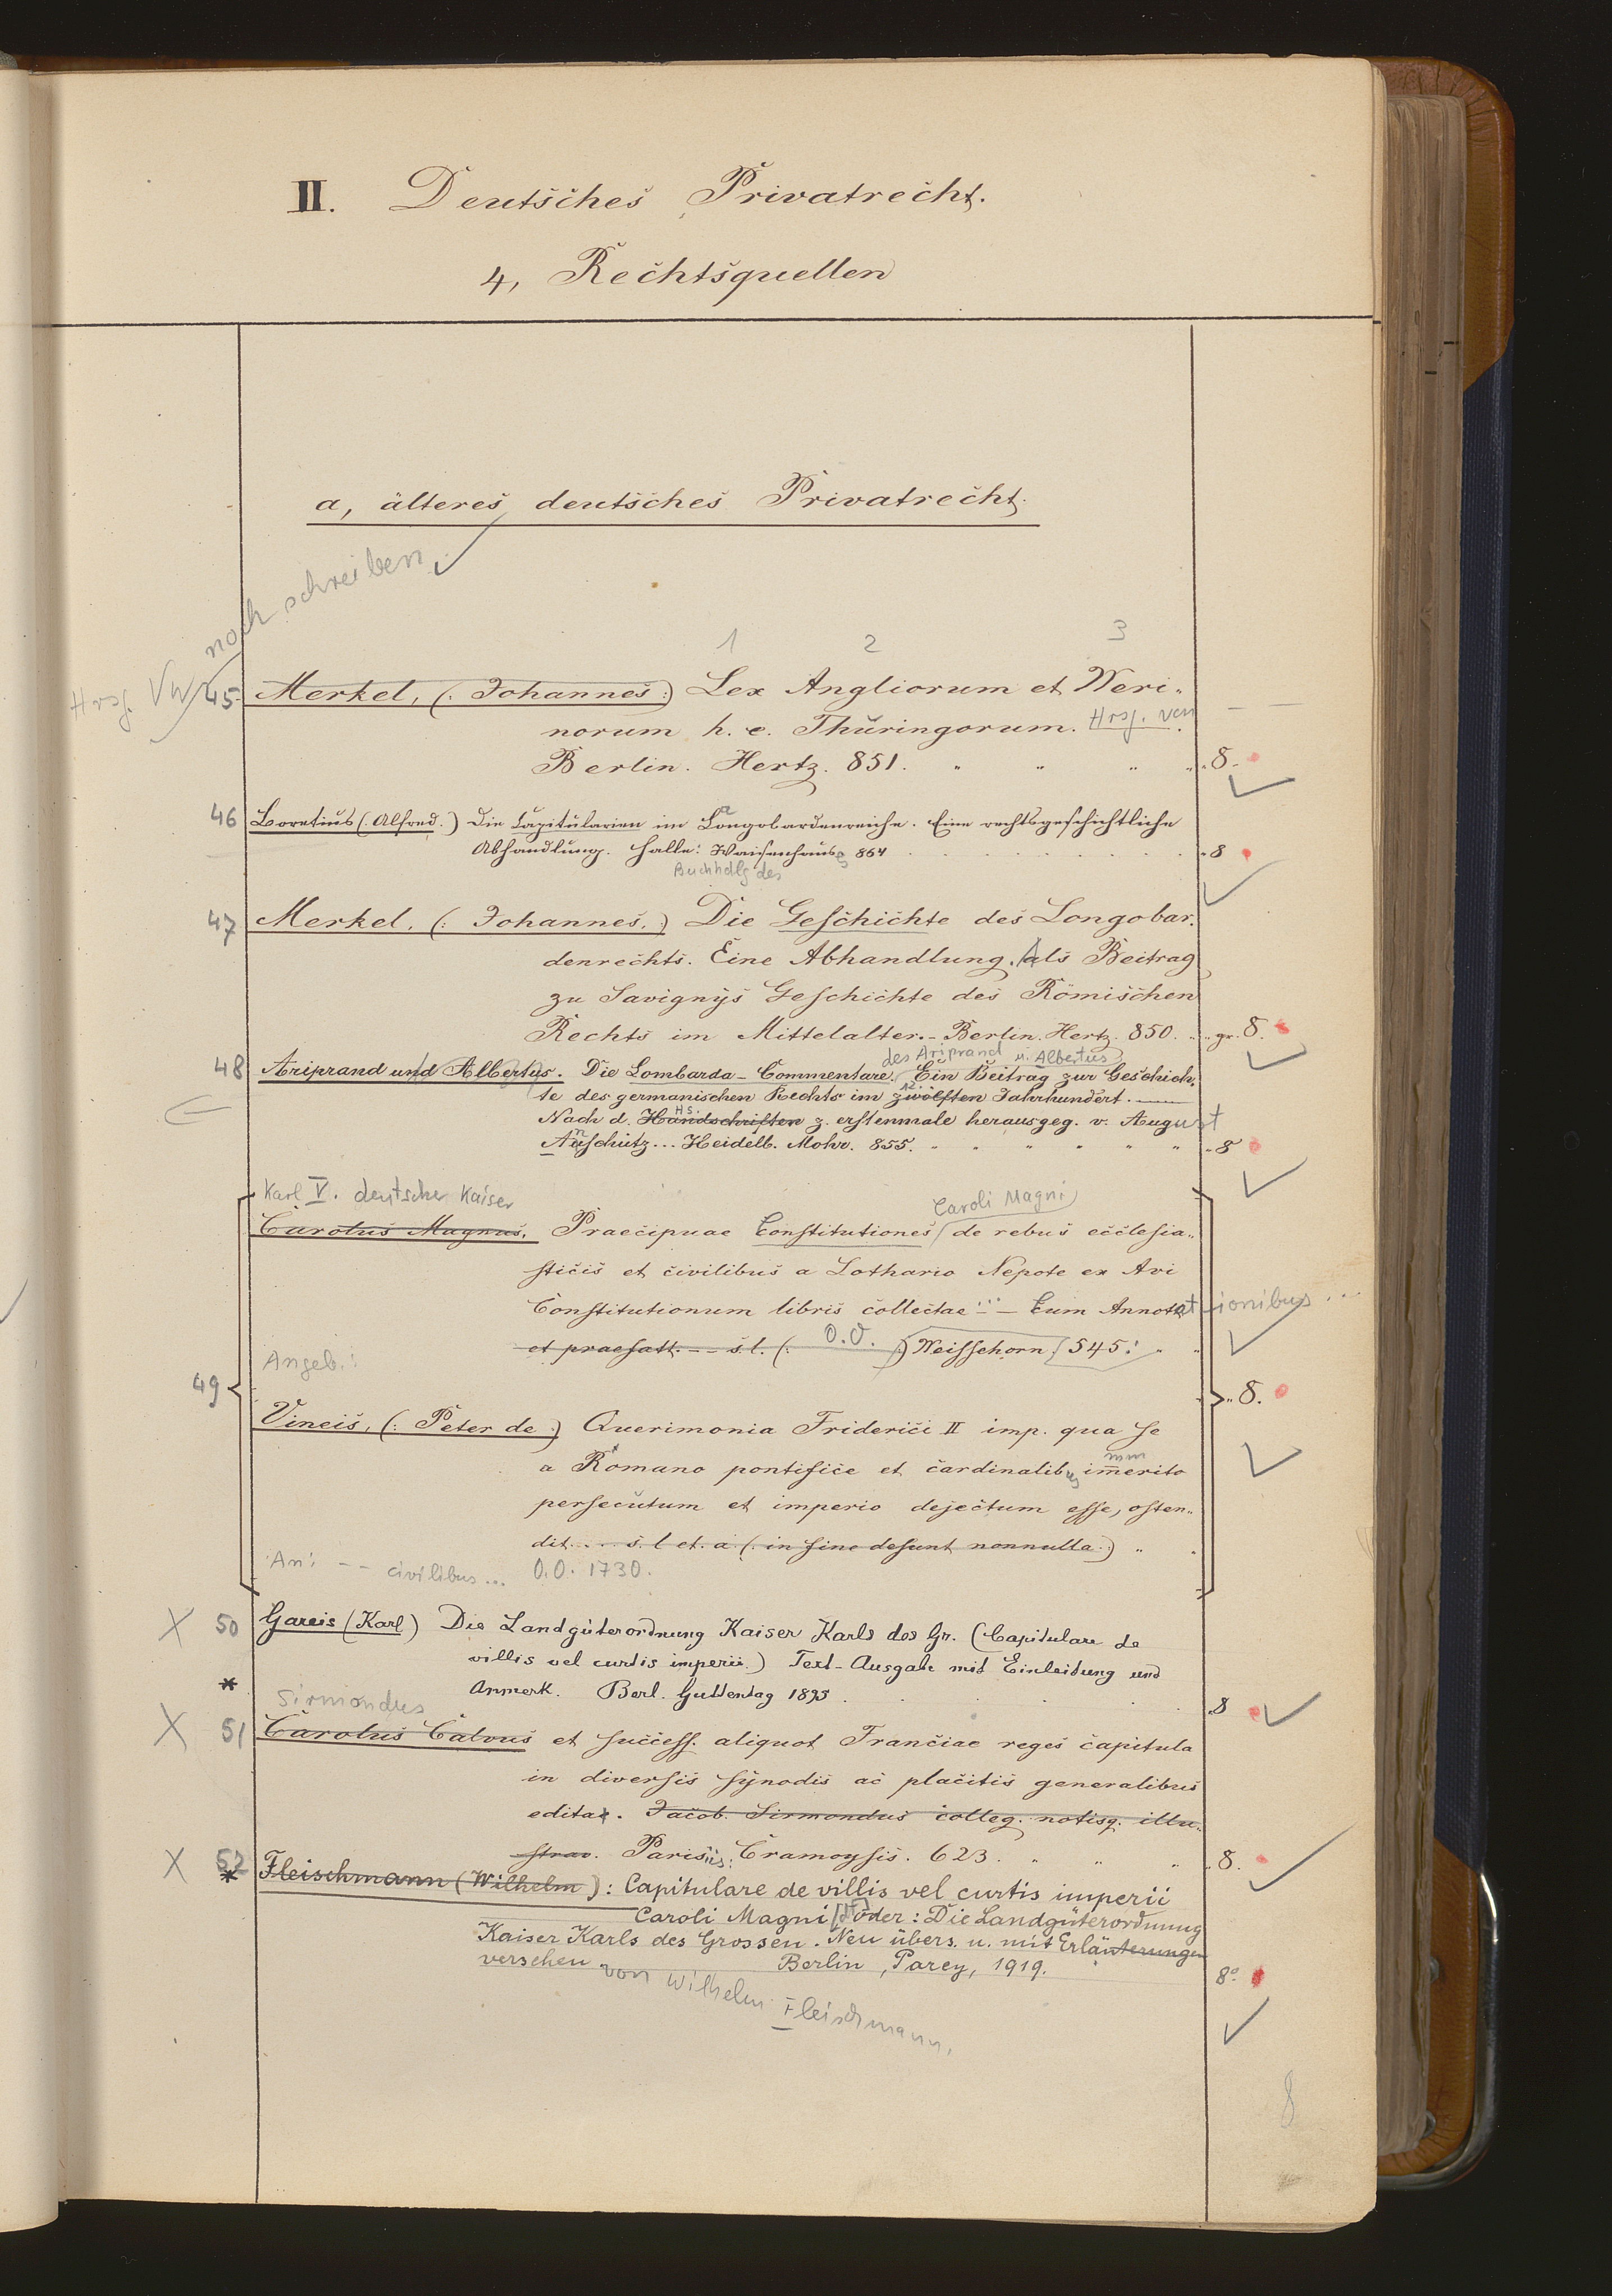 II. Deutsches Privatrecht.
4, Rechtsquellen
a, älteres deutsches Privatrecht.
noch schreiben
1 2 3
Hrsg. VW 45 Merkel, (: Johannes :) Lex Angliorum et Weri-
norum h. e. Thüringorum. Hrsg. von
Berlin. Hertz. 851. " " " " 8.
46 Boretius (: Alfred. ) Die Capitularien im Langobardenreiche. Eine rechtsgeschichtliche
Abhandlung. Halle: Waisenhaus 864 8
Buchhdlg des
47 Merkel, (: Johannes. :) Die Geschichte des Longobar-
denrechts. Eine Abhandlung. Als Beitrag
zu Savignys Geschichte des Römischen
Rechts im Mittelalter. - Berlin. Hertz. 850. gr. 8.
des Ariprand u. Albertus
48 Ariprand und Albertus. Die Lombarda-Commentare. Ein Beitrag zur Geschich-
te des germanischen Rechts im zwölften Jahrhundert.
12.
Hs.
Nach d. Handschriften z. erstenmale herausgeg. v. August
Anschütz... Heidelb. Mohr. 855. " " " " " " 8
Karl V. deutscher Kaiser
Caroli Magni
Carolus Magnus. Praecipuae Constitutiones de rebus ecclesia-
sticis et civilibus a Lothario Nepote ex Avi
Constitutionum libris collectae ... - Cum Annotationibus ...
et praefatt. - - s. l. (: O. O. :) Weissehorn 545.
Angeb.:
49 8.
Vineis, (: Peter de :) Querimonia Friderici II imp. qua se
a Romano pontifice et cardinalibus immerito
mm
persecutum et imperio dejectum esse, osten-
dit. ... s. l et. a. (: in fine desunt nonnulla :) "
An: -- civilibus ... O. O. 1730.
X 50 Gareis (Karl) Die Landgüterordnung Kaiser Karls des Gr. (Capitulare de
villis vel curtis imperii.) Text-Ausgabe mit Einleitung und
* Anmerk. Berl. Guttentag 1895. 8
Sirmondus
X 51 Carolus Calvus et success. aliquot Franciae reges capitula
in diversis synodis ac placitis generalibus
edita. Jacob. Sirmondus colleg. notisq. illu-
strav. Parisiis: Cramoysis. 623. " " " 8.
X 52
* Fleischmann (Wilhelm): Capitulare de villis vel curtis imperii
Caroli Magni [dt.] oder: Die Landgüterordnung
Kaiser Karls des Grossen. Neu übers. u. mit Erläuterungen
versehen Berlin, Parey, 1919. 8°
von Wilhelm Fleischmann.
8